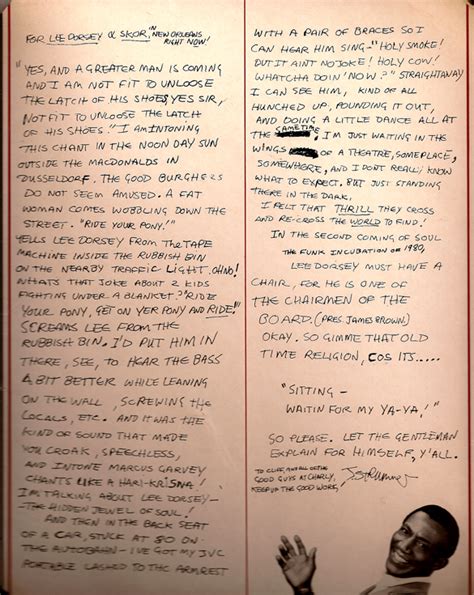 FOR LEE DORSEY & SKOR, IN NEW ORLEANS
RIGHT NOW!
"YES, AND A GREATER MAN IS COMING
AND I AM NOT FIT TO UNLOOSE
THE LATCH OF HIS SHOES, YES SIR,
NOT FIT TO UNLOOSE THE LATCH
OF HIS SHOES!" I AM INTONING
THIS CHANT IN THE NOON DAY SUN
OUTSIDE THE MACDONALDS IN
DUSSELDORF. THE GOOD BURGHERS
DO NOT SEEM AMUSED. A FAT
WOMAN COMES WOBBLING DOWN THE
STREET. "RIDE YOUR PONY!"
YELLS LEE DORSEY FROM THE TAPE
MACHINE INSIDE THE RUBBISH BIN
ON THE NEARBY TRAFFIC LIGHT. OHNO!
WHATS THAT JOKE ABOUT 2 KIDS
FIGHTING UNDER A BLANKET? "RIDE
YOUR PONY, GET ON YER PONY AND RIDE!"
SCREAMS LEE FROM THE
RUBBISH BIN. I'D PUT HIM IN
THERE, SEE, TO HEAR THE BASS
A BIT BETTER WHILE LEANING
ON THE WALL, SCREWING THE
LOCALS, ETC. AND IT WAS THE
KIND OF SOUND THAT MADE
YOU CROAK, SPEECHLESS,
AND INTONE MARCUS GARVEY
CHANTS LIKE A HARI-KRISNA!
I'M TALKING ABOUT LEE DORSEY-
-THE HIDDEN JEWEL OF SOUL!
AND THEN IN THE BACK SEAT
OF A CAR, STUCK AT 80 ON
THE AUTOBAHN - I'VE GOT MY JVC
PORTABLE LASHED TO THE ARMREST
WITH A PAIR OF BRACES SO I
CAN HEAR HIM SING-"HOLY SMOKE!
BUT IT AINT NO JOKE! HOLY COW!
WHATCHA DOIN' NOW?" STRAIGHTAWAY
I CAN SEE HIM, KIND OF ALL
HUNCHED UP, POUNDING IT OUT,
AND DOING A LITTLE DANCE ALL AT
THE SAME TIME! I'M JUST WAITING IN THE
WINGS OF A THEATRE, SOMEPLACE,
SOMEWHERE, AND I DONT REALLY KNOW
WHAT TO EXPECT. BUT JUST STANDING
THERE IN THE DARK,
I FELT THAT THRILL THEY CROSS
AND RE-CROSS THE WORLD TO FIND!
IN THE SECOND COMING OF SOUL
THE FUNK INCUBATION OF 1980,
LEE DORSEY MUST HAVE A
CHAIR, FOR HE IS ONE OF
THE CHAIRMEN OF THE
BOARD. (PRES. JAMES BROWN.)
OKAY. SO GIMME THAT OLD
TIME RELIGION, COS ITS.....
"SITTING -
WAITIN FOR MY YA-YA!"
SO PLEASE. LET THE GENTLEMAN
EXPLAIN FOR HIMSELF, Y'ALL.
TO CLIFF, AND ALL OF THE
GOOD GUYS AT CHARLY,
KEEP UP THE GOOD WORK!